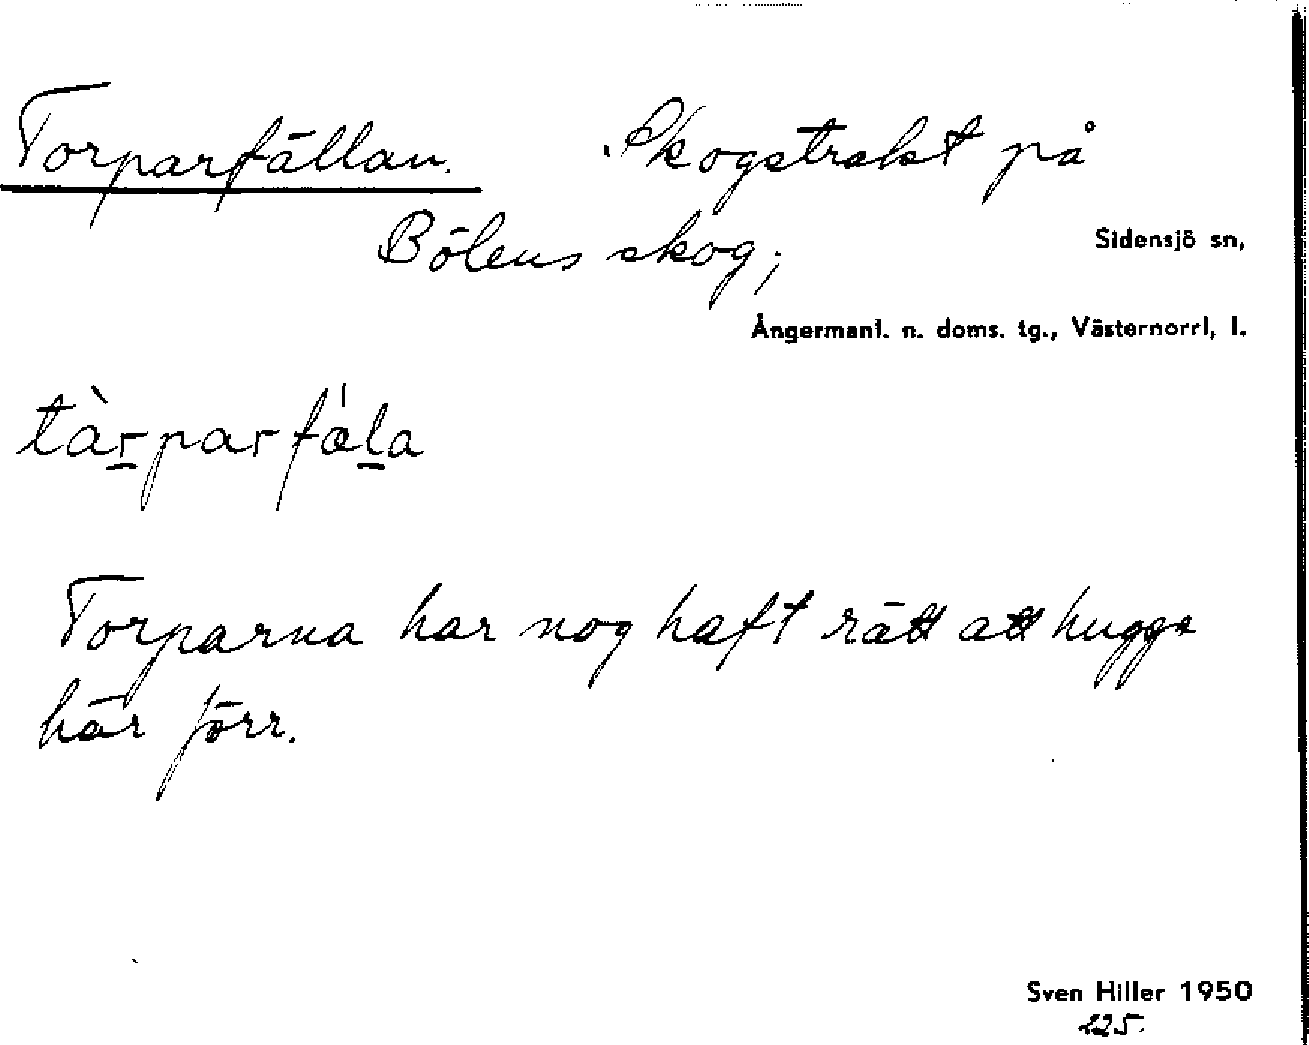 Torparfällan. Skogstrakt på
Bölens skog;
Sidensjö sn,
Ångermanl. n. doms. tg., Västernorrl, l.
tàr̲parfǽl̲a
Torparna har nog haft rätt att hugga
här förr.
Sven Hiller 1950
225.